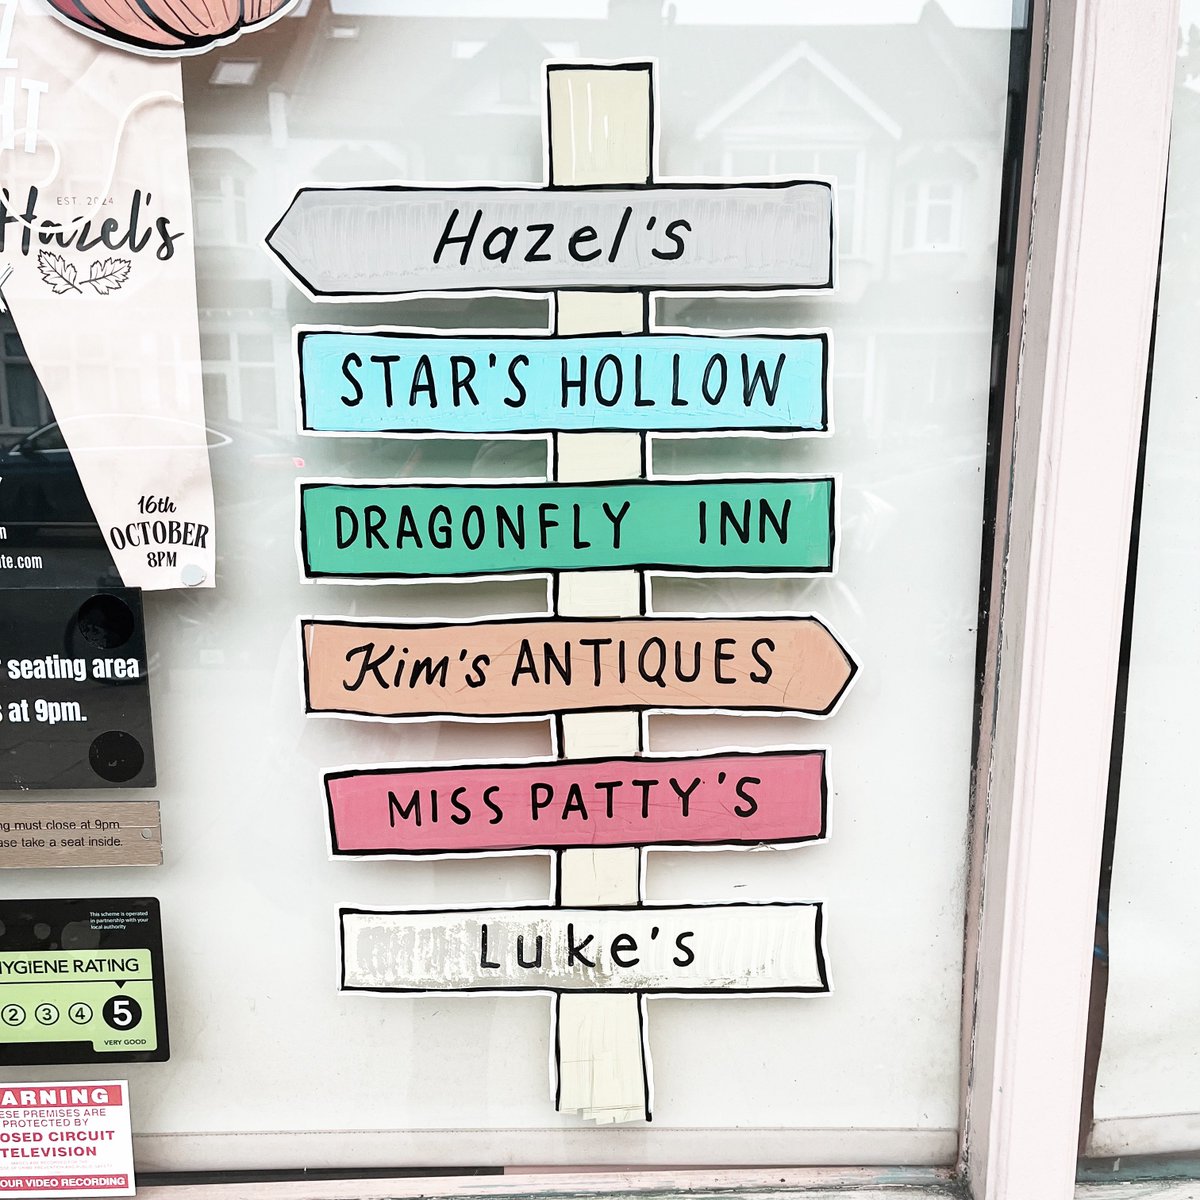 EST. 2024
Hazel's
16th
OCTOBER
8PM
seating area
at 9pm.
must close at 9pm.
take a seat inside.
This scheme is operated
in partnership with your
local authority
HYGIENE RATING
2 3 4 5
VERY GOOD
PREMISES ARE
PROTECTED BY
CIRCUIT
TELEVISION
VIDEO RECORDING
Hazel's
STAR'S HOLLOW
DRAGONFLY INN
Kim's ANTIQUES
MISS PATTY'S
Luke's